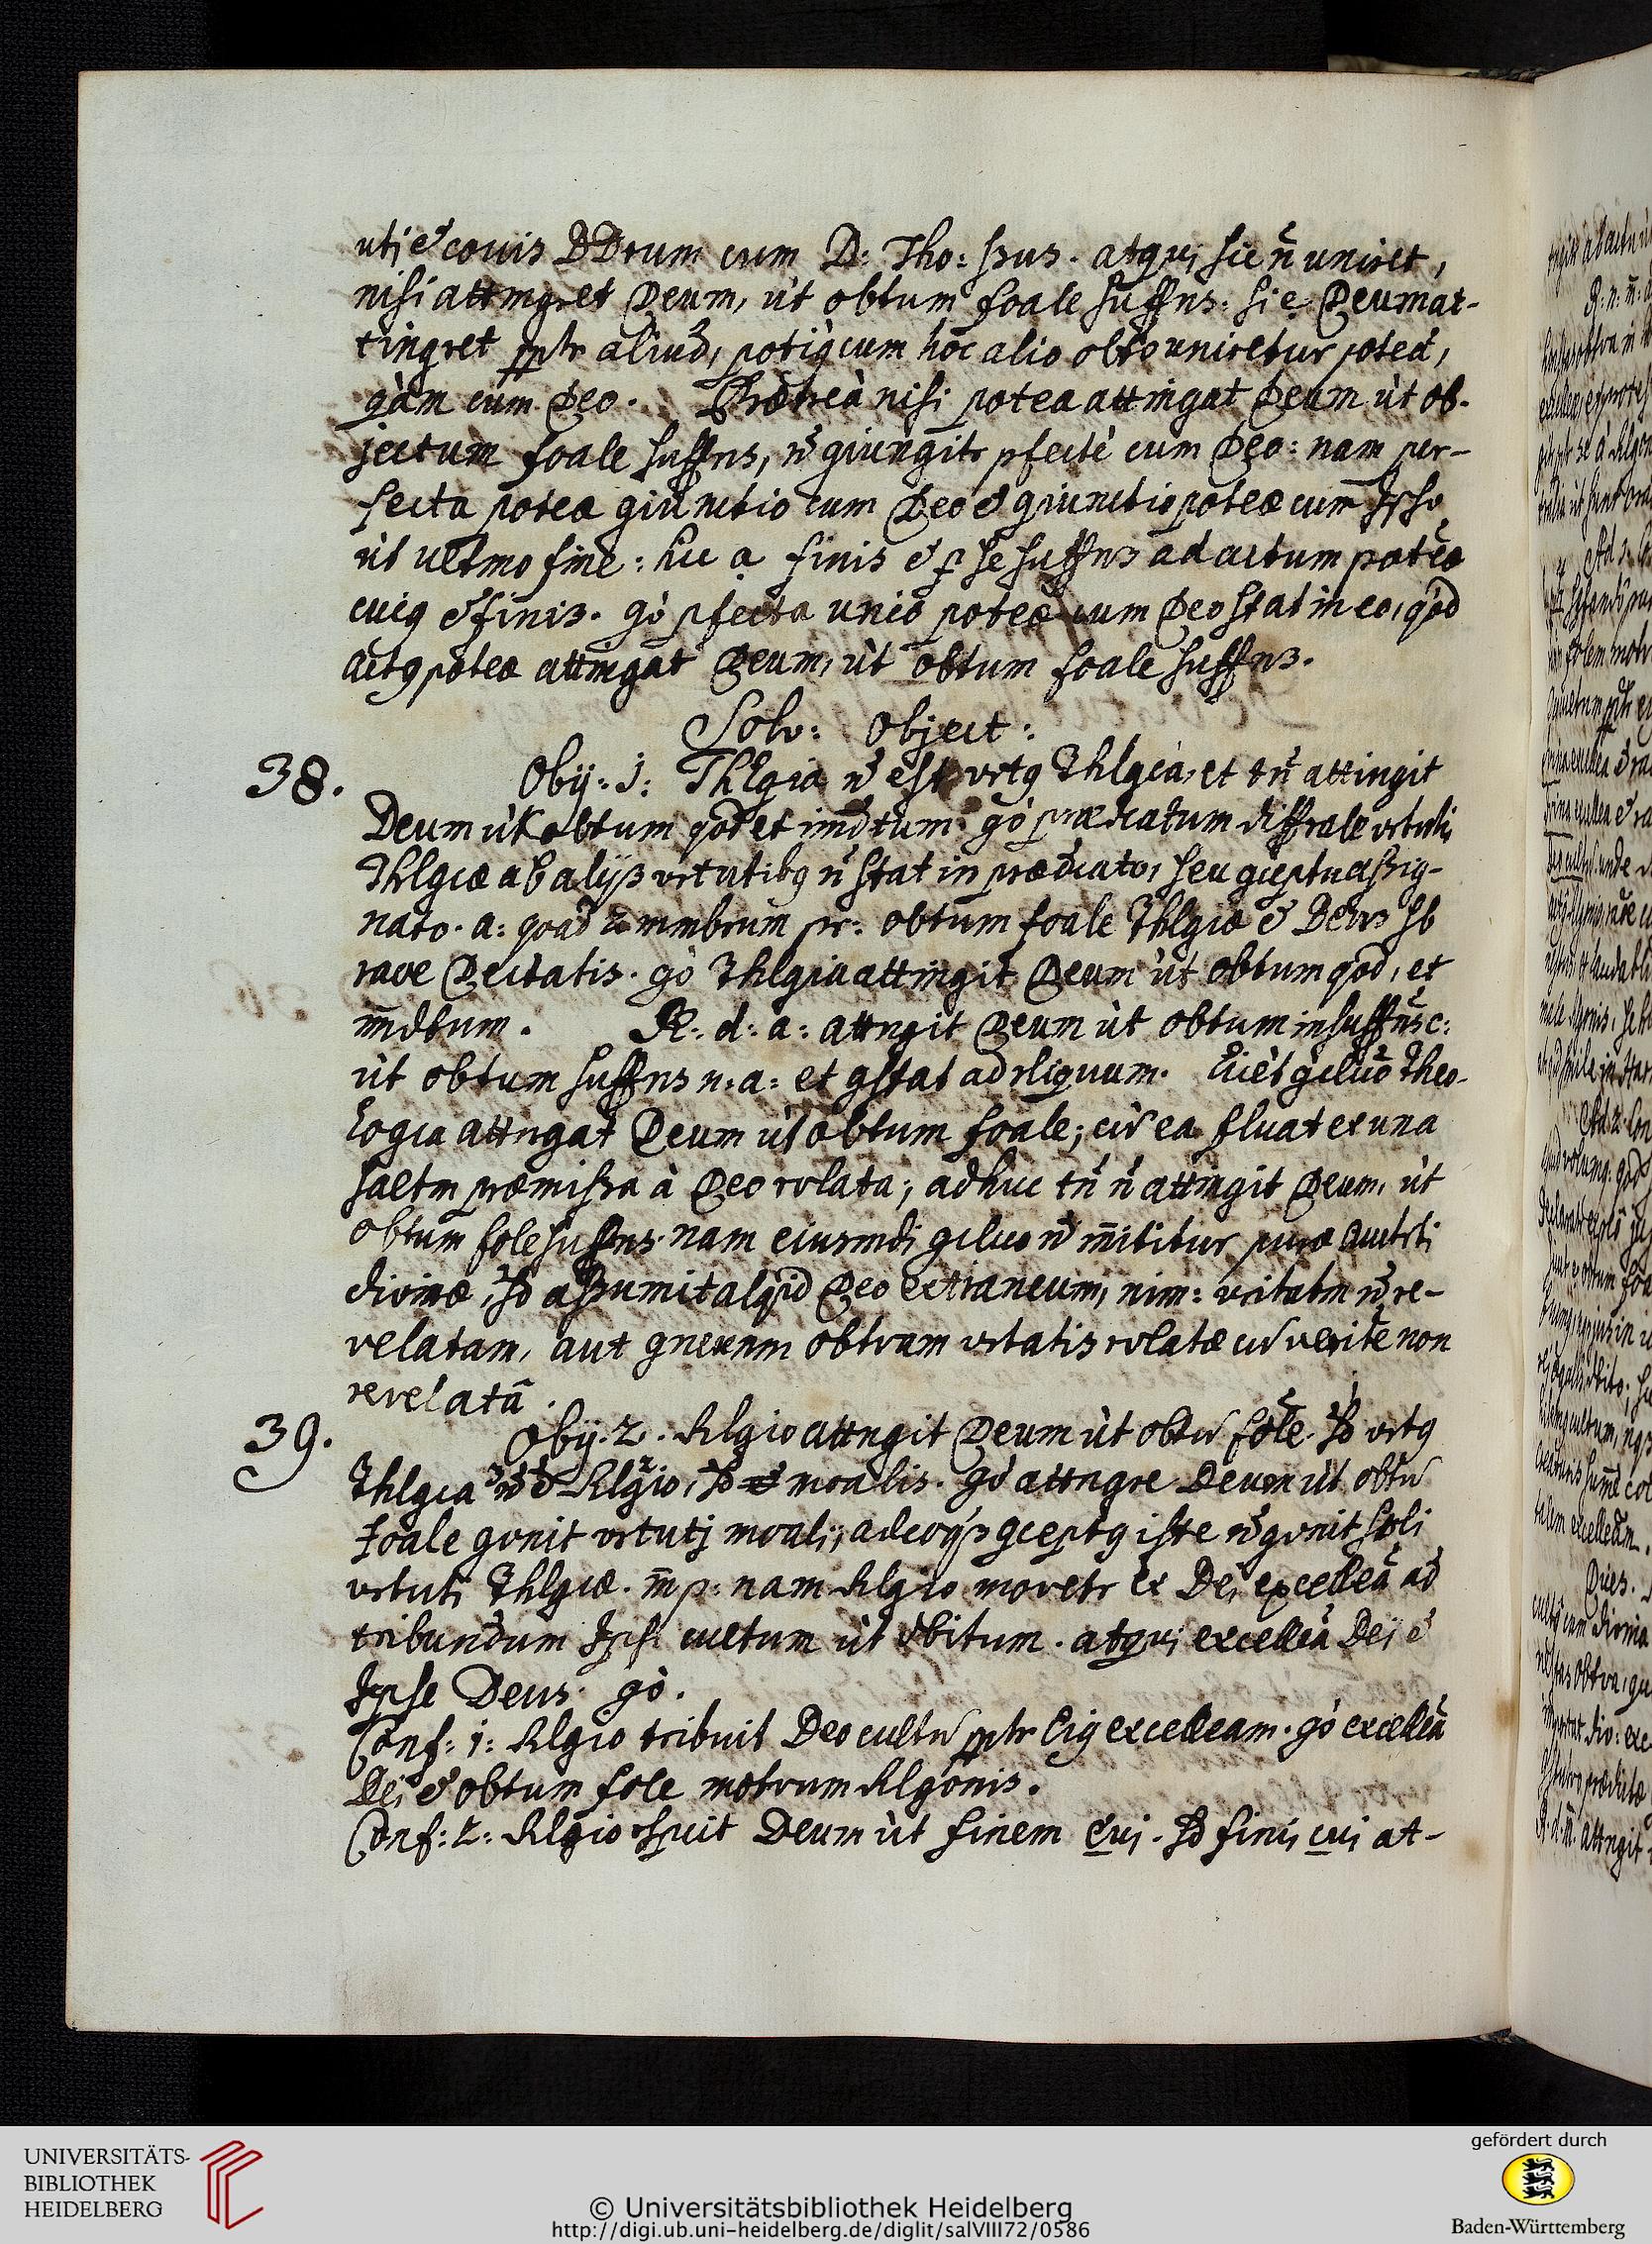 utj ẽ cõuis DDrum cum D: Tho: ssus. atqui sic ñ uniret,
nisi attingret Deum, ùt obtum foale suffns: si .e. Deum at-
tingret pptr aliud, potiq cum hoc alio obto uniretur potea,
qàm cum Deo. Prætreà nisi potea attingat Deum ùt ob-
jectum foale suffns, ñ gjungitr pfectè cum Deo: nam per-
fecta poteæ gjunctio cum Deo ẽ gjunctio poteæ cum Ipso
ùt ultmo fine: hic a finis ẽ p se suffns ad actum poteæ
cuiq ẽ finis. gò pfecta unio poteæ cum Deo stat in eo, qòd
actq poteæ attingat Deum, ùt obtum foale suffns.
Solv: Object:
38. Obij: 1: Thlgia ñ est vrtq Thlgca, et tñ attingit
Deum ùt obtum qod et imdtum. gò prædicatum diffrale vrtuti
Thlgcæ ab alijs vrtutibq ñ stat in prædicato, seu gceptu assig-
nato. a: qoad 2 mmbrum pr: obtum foale Thlgiæ ẽ Deus sb
raõe Deitatis. gò Thlgia attingit Deum ùt obtum qod, et
imdtum. R: d: a: attngit Deum ùt obtum insuffns c:
ùt obtum suffns n: a: et gstat ad rliquum. Licèt gclusio Theo-
logica attngat Deum ùt obtum foale; cùm ea fluat ex una
saltm præmissa à Deo rvlata; adhuc tñ ñ attingit Deum, ùt
obtum fole suffns. nam eiusmdi gclusio ñ innititur puræ auctrti
divinæ, sd assumit alqid Deo extraneum, nim: vritatm ñ re-
velatam, aut gnexnm obtvam vrtatis rvlatæ cũ verite non
revelatã.
39. Obij. 2. Rlgio attngit Deum ùt obtũ fole. sd vrtq
Thlgca ñ ẽ Rlgio, sd moralis. gò attngre Deum ùt obtũ
foale gvnit vrtutj morali, adeoqs gceptq iste ñ gvnit soli
vrtuti Thlgcæ. m p: nam Rlgio movetr ex Dei excellea ad
tribundum Ipsi cultum ùt dbitum. atqui excellea Dei ẽ
Ipse Deus. gò.
Conf: 1: Rlgio tribuit Deo cultũ pptr Eiq excelleam. gò excellea
Dei ẽ obtum fole motvum Rlgõnis.
Conf: 2: Rlgio rspicit Deum ùt finem cui. sd finis cui at-
UNIVERSITÄTS-
BIBLIOTHEK
HEIDELBERG
© Universitätsbibliothek Heidelberg
http://digi.ub.uni-heidelberg.de/diglit/salVIII72/0586
gefördert durch
Baden-Württemberg